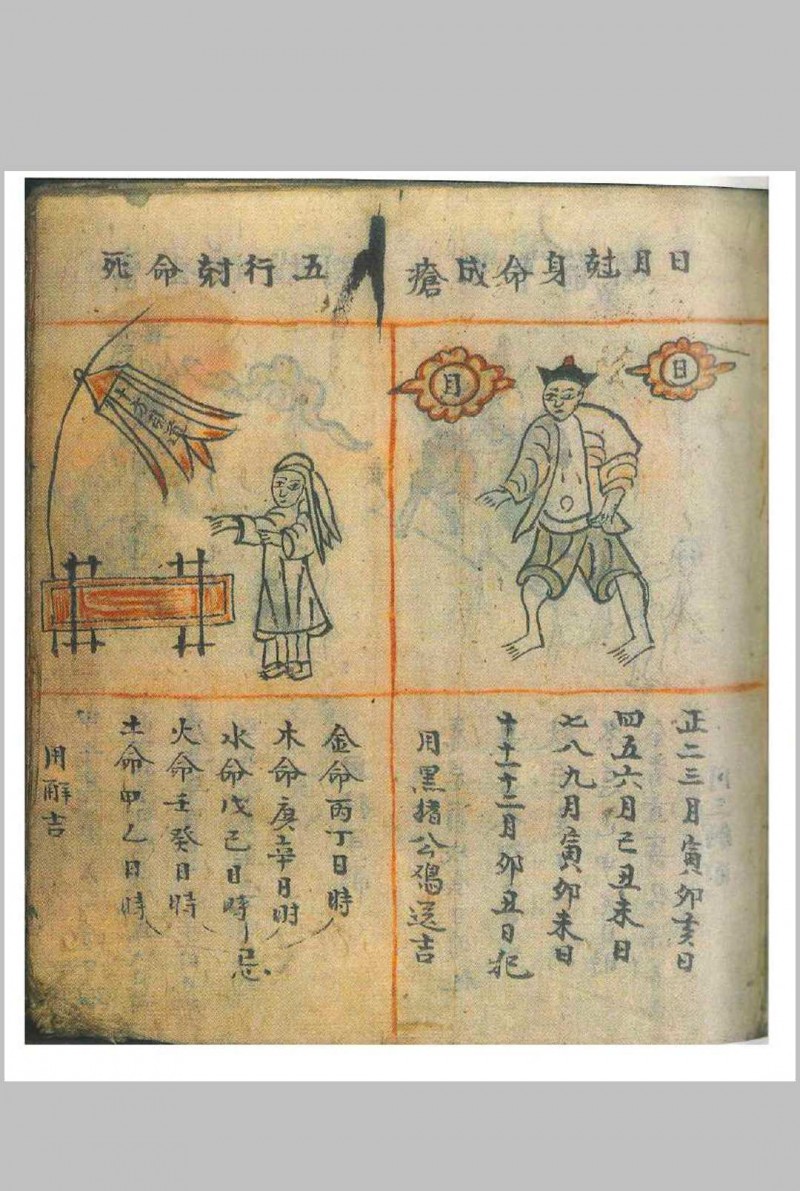 日月尅身命成瘡
日
月
正二三月寅卯亥日
四五六月巳丑未日
七八九月寅卯未日
十十一十二月卯丑日犯
用黑公送吉
五行尅命死
金命丙丁日時
木命庚辛日時
水命戊己日時
火命壬癸日時
土命甲乙日時
忌
用解吉